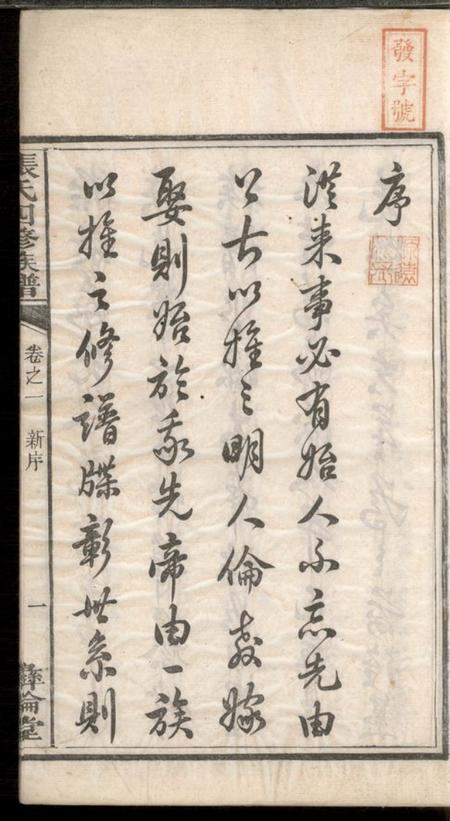 發字號
序
從来事必有始人不忘先由
古以推之明人倫教嫁
娶則始於我先帝由一族
以推之修譜牒彰世系則
張氏四修族譜 卷之一 新序 一 彝倫堂